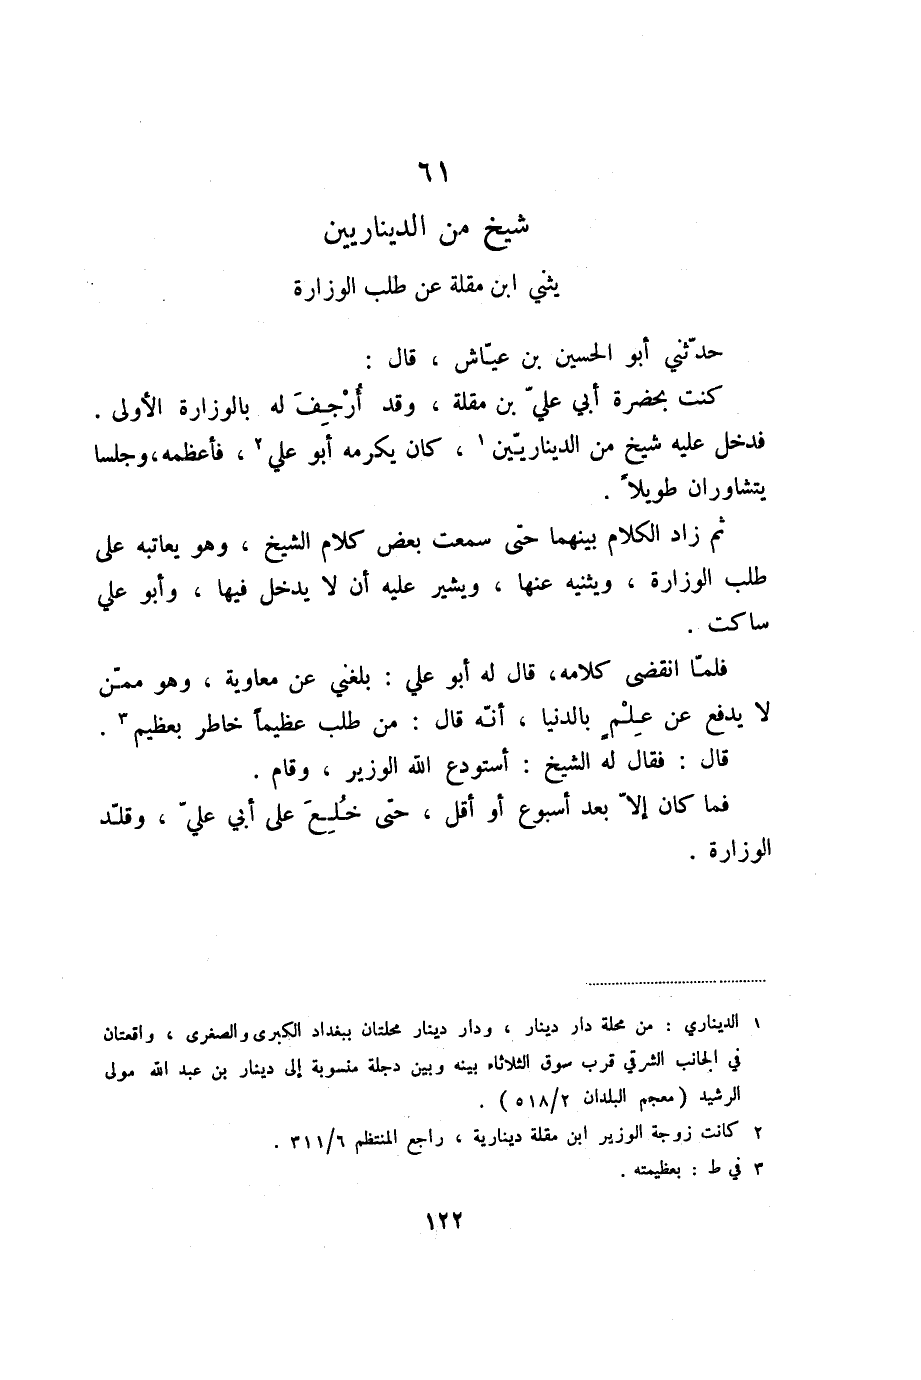 ٦١
شيخ من الديناريين
يثني ابن مقلة عن طلب الوزارة
حدّثني أبو الحسين بن عيّاش ، قال :
كنت بحضرة أبي عليّ بن مقلة ، وقد أُرْجِفَ له بالوزارة الأولى .
فدخل عليه شيخ من الديناريّين ١ ، كان يكرمه أبو علي ٢ ، فأعظمه ، وجلسا
يتشاوران طويلاً .
ثم زاد الكلام بينهما حتّى سمعت بعض كلام الشيخ ، وهو يعاتبه على
طلب الوزارة ، ويثنيه عنها ، ويشير عليه أن لا يدخل فيها ، وأبو علي
ساكت .
فلمّا انقضى كلامه ، قال له أبو علي : بلغني عن معاوية ، وهو ممّن
لا يدفع عن عِلْمٍ بالدنيا ، أنّه قال : من طلب عظيماً خاطر بعظيم ٣ .
قال : فقال له الشيخ : أستودع الله الوزير ، وقام .
فما كان إلاّ بعد أسبوع أو أقل ، حتّى خُلِعَ على أبي عليّ ، وقلّد
الوزارة .
١ الديناري : من محلة دار دينار ، ودار دينار محلتان ببغداد الكبرى والصغرى ، واقعتان
في الجانب الشرقي قرب سوق الثلاثاء بينه وبين دجلة منسوبة إلى دينار بن عبد الله مولى
الرشيد ( معجم البلدان ٥١٨/٢ ) .
٢ كانت زوجة الوزير ابن مقلة دينارية ، راجع المنتظم ٣١١/٦ .
٣ في ط : بعظيمته .
١٢٢